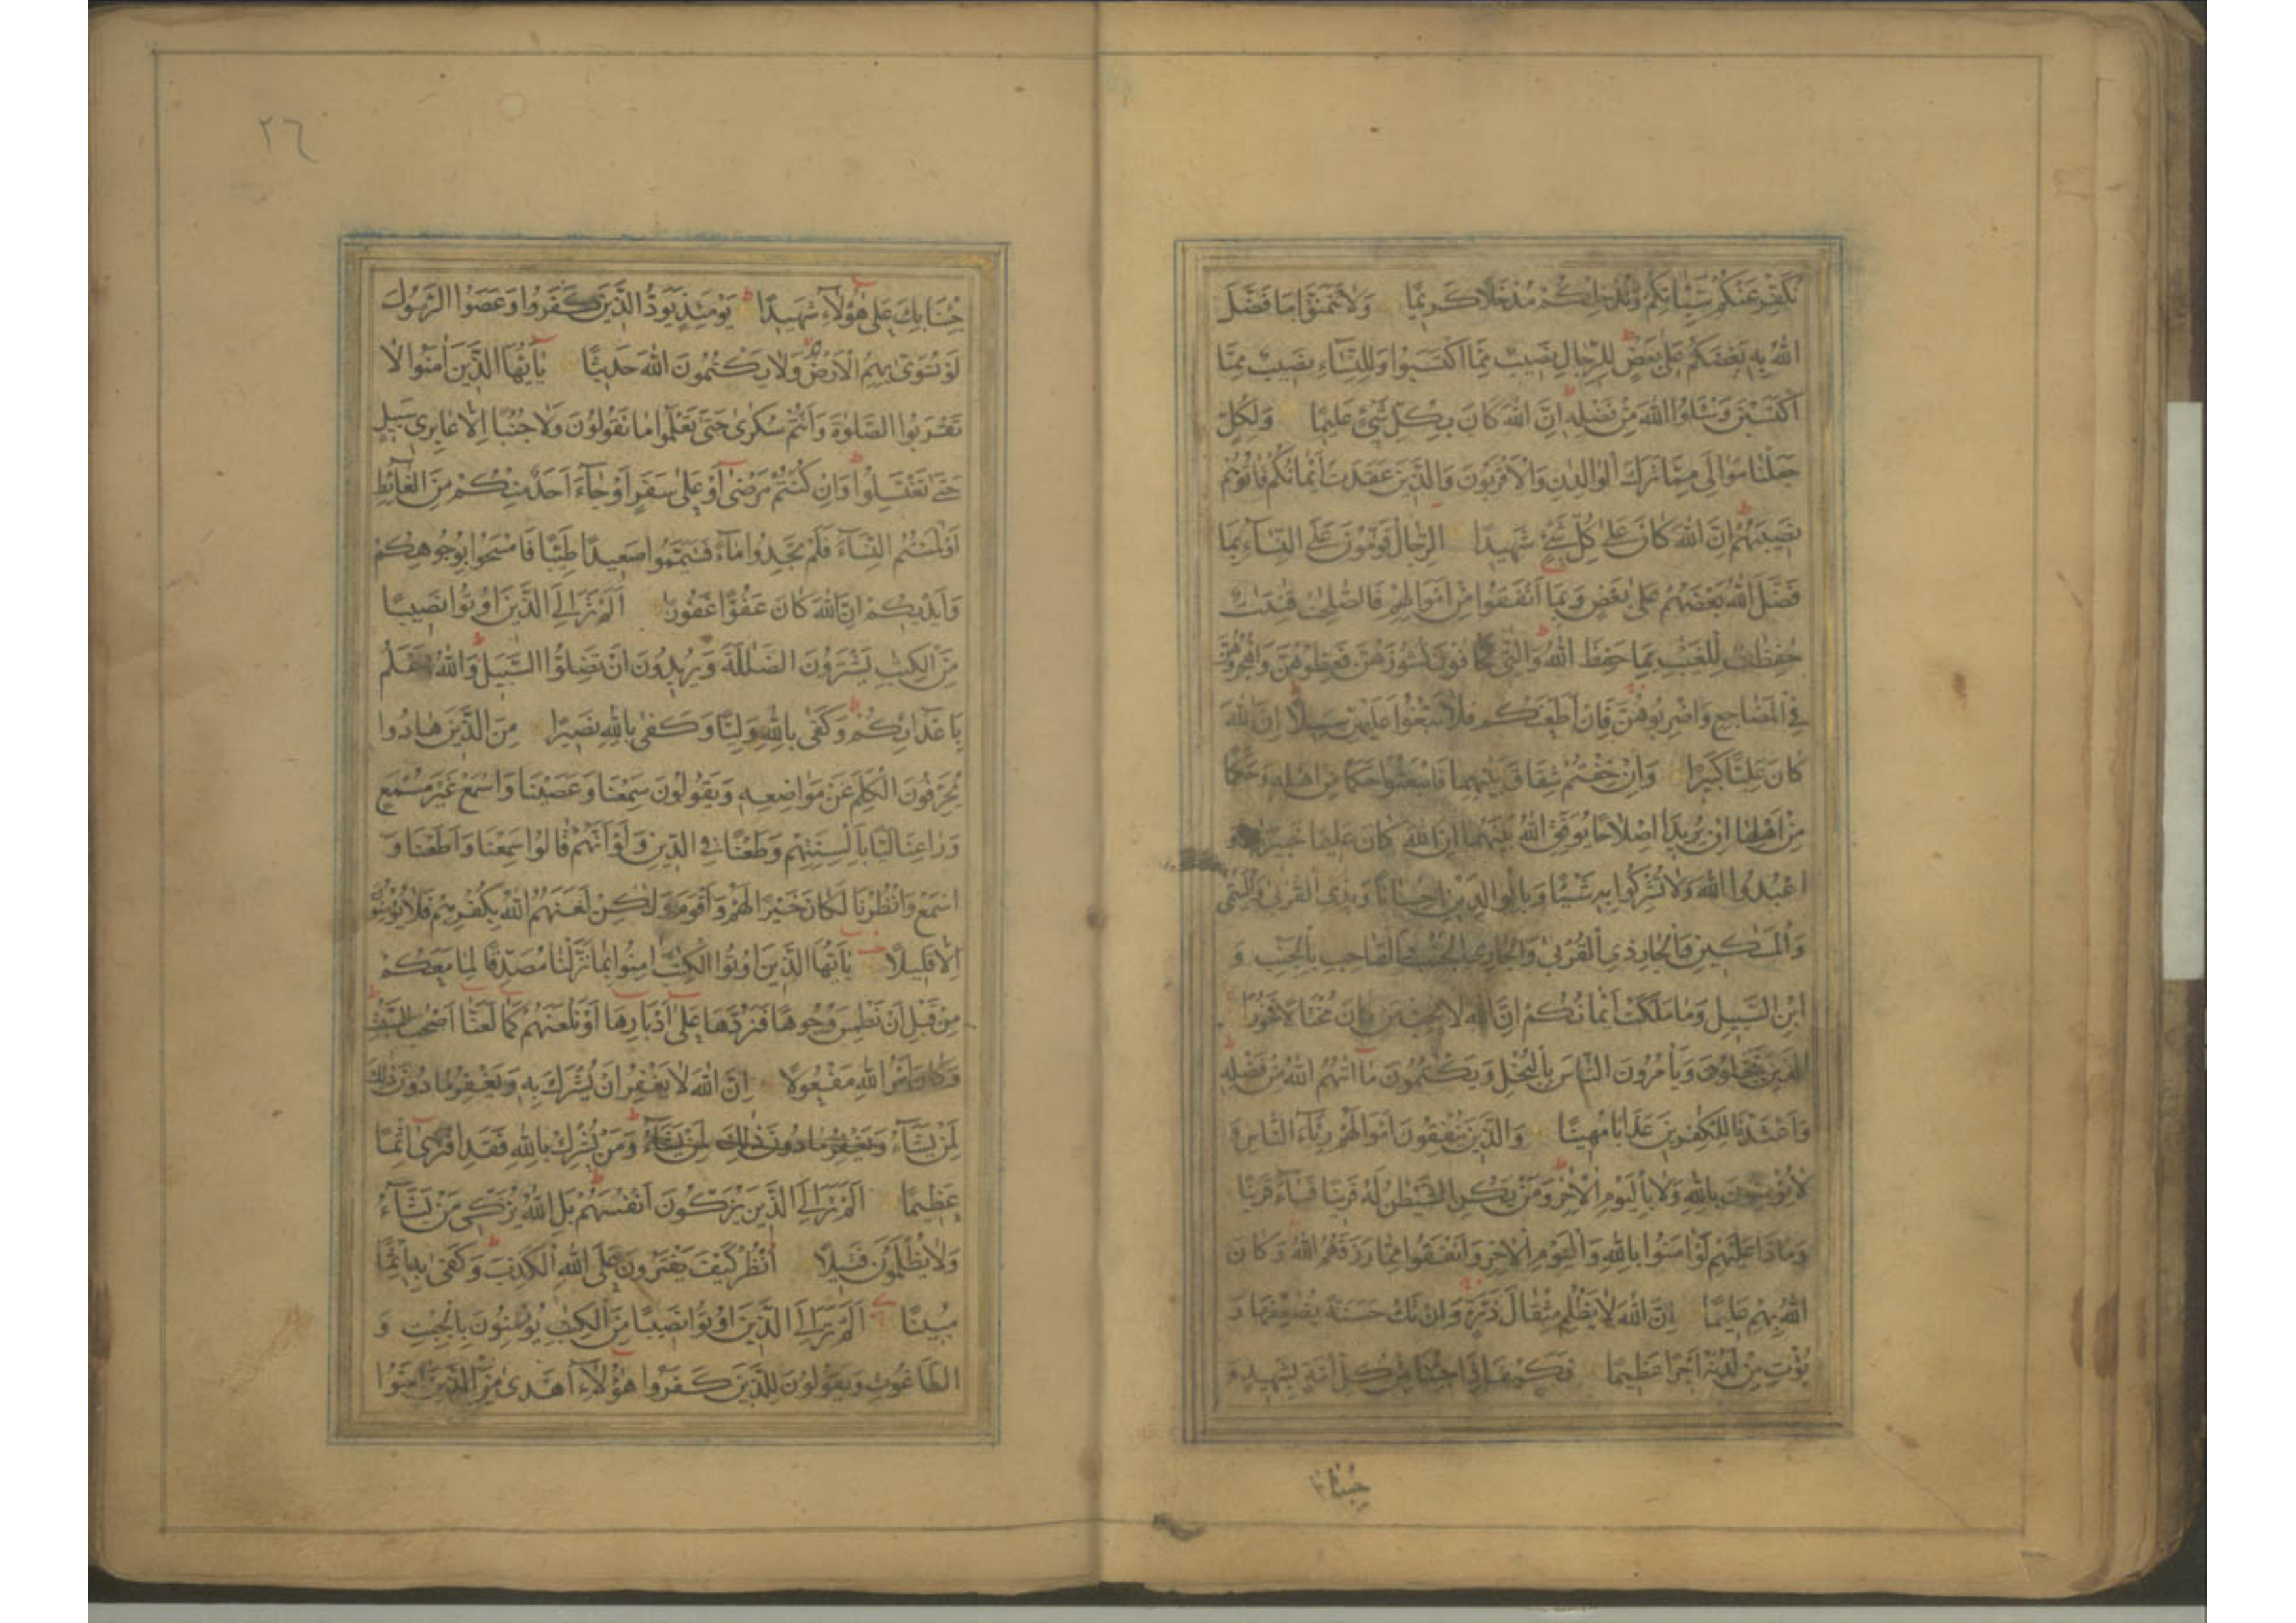 نكفر عنكم سيئاتكم وندخلكم مدخلا كريما ولا تتمنوا ما فضل
الله به بعضكم على بعض للرجال نصيب مما اكتسبوا وللنساء نصيب مما
اكتسبن وسئلوا الله من فضله ان الله كان بكل شئ عليما ولكل
جعلنا موالى مما ترك الوالدن والاقربون والذين عقدت ايمانكم فاتوهم
نصيبهم ان الله كان على كل شئ شهيدا الرجال قومون على النساء بما
فضل الله بعضهم على بعض وبما انفقوا من اموالهم فالصلحت قنتت
حفظت للغيب بما حفظ الله والتى تخافون نشوزهن فعظوهن واهجروهن
فى المضاجع واضربوهن فان اطعنكم فلا تبغوا عليهن سبيلا ان الله
كان عليا كبيرا وان خفتم شقاق بينهما فابعثوا حكما من اهله وحكما
من اهلها ان يريدا اصلاحا يوفق الله بينهما ان الله كان عليما خبيرا و
اعبدوا الله ولا تشركوا به شيئا وبالوالدين احسانا وبذى القربى واليتمى
والمسكين والجار ذى القربى والجار الجنب والصاحب بالجنب و
ابن السبيل وما ملكت ايمانكم ان الله لا يحب من كان مختالا فخورا
الذين يبخلون ويأمرون الناس بالبخل ويكتمون ما اتهم الله من فضله
واعتدنا للكفرين عذابا مهينا والذين ينفقون اموالهم رئاء الناس
لا يؤمنون بالله ولا باليوم الاخر ومن يكن الشيطن له قرينا فساء قرينا
وماذا عليهم لو امنوا بالله واليوم الاخر وانفقوا مما رزقهم الله وكان
الله بهم عليما ان الله لا يظلم مثقال ذرة وان تك حسنة يضعفها و
يؤت من لدنه اجرا عظيما فكيف اذا جئنا من كل امة بشهيد و
جئنا
٢٦
جئنا بك على هؤلاء شهيدا يومئذ يود الذين كفروا وعصوا الرسول
لو تسوى بهم الارض ولا يكتمون الله حديثا يايها الذين امنوا لا
تقربوا الصلوة وانتم سكرى حتى تعلموا ما تقولون ولا جنبا الا عابرى سبيل
حتى تغتسلوا وان كنتم مرضى او على سفر او جاء احد منكم من الغائط
او لمستم النساء فلم تجدوا ماء فتيمموا صعيدا طيبا فامسحوا بوجوهكم
وايديكم ان الله كان عفوا غفورا الم تر الى الذين اوتوا نصيبا
من الكتب يشترون الضللة ويريدون ان تضلوا السبيل والله اعلم
باعدائكم وكفى بالله وليا وكفى بالله نصيرا من الذين هادوا
يحرفون الكلم عن مواضعه ويقولون سمعنا وعصينا واسمع غير مسمع
وراعنا ليا بالسنتهم وطعنا فى الدين ولو انهم قالوا سمعنا واطعنا و
اسمع وانظرنا لكان خيرا لهم واقوم ولكن لعنهم الله بكفرهم فلا يؤمنون
الا قليلا يايها الذين اوتوا الكتب امنوا بما نزلنا مصدقا لما معكم
من قبل ان نطمس وجوها فنردها على ادبارها او نلعنهم كما لعنا اصحب السبت
وكان امر الله مفعولا ان الله لا يغفر ان يشرك به ويغفر ما دون ذلك
لمن يشاء ويغفر ما دون ذلك لمن يشاء ومن يشرك بالله فقد افترى اثما
عظيما الم تر الى الذين يزكون انفسهم بل الله يزكى من يشاء
ولا يظلمون فتيلا انظر كيف يفترون على الله الكذب وكفى به اثما
مبينا الم تر الى الذين اوتوا نصيبا من الكتب يؤمنون بالجبت و
الطاغوت ويقولون للذين كفروا هؤلاء اهدى من الذين امنوا